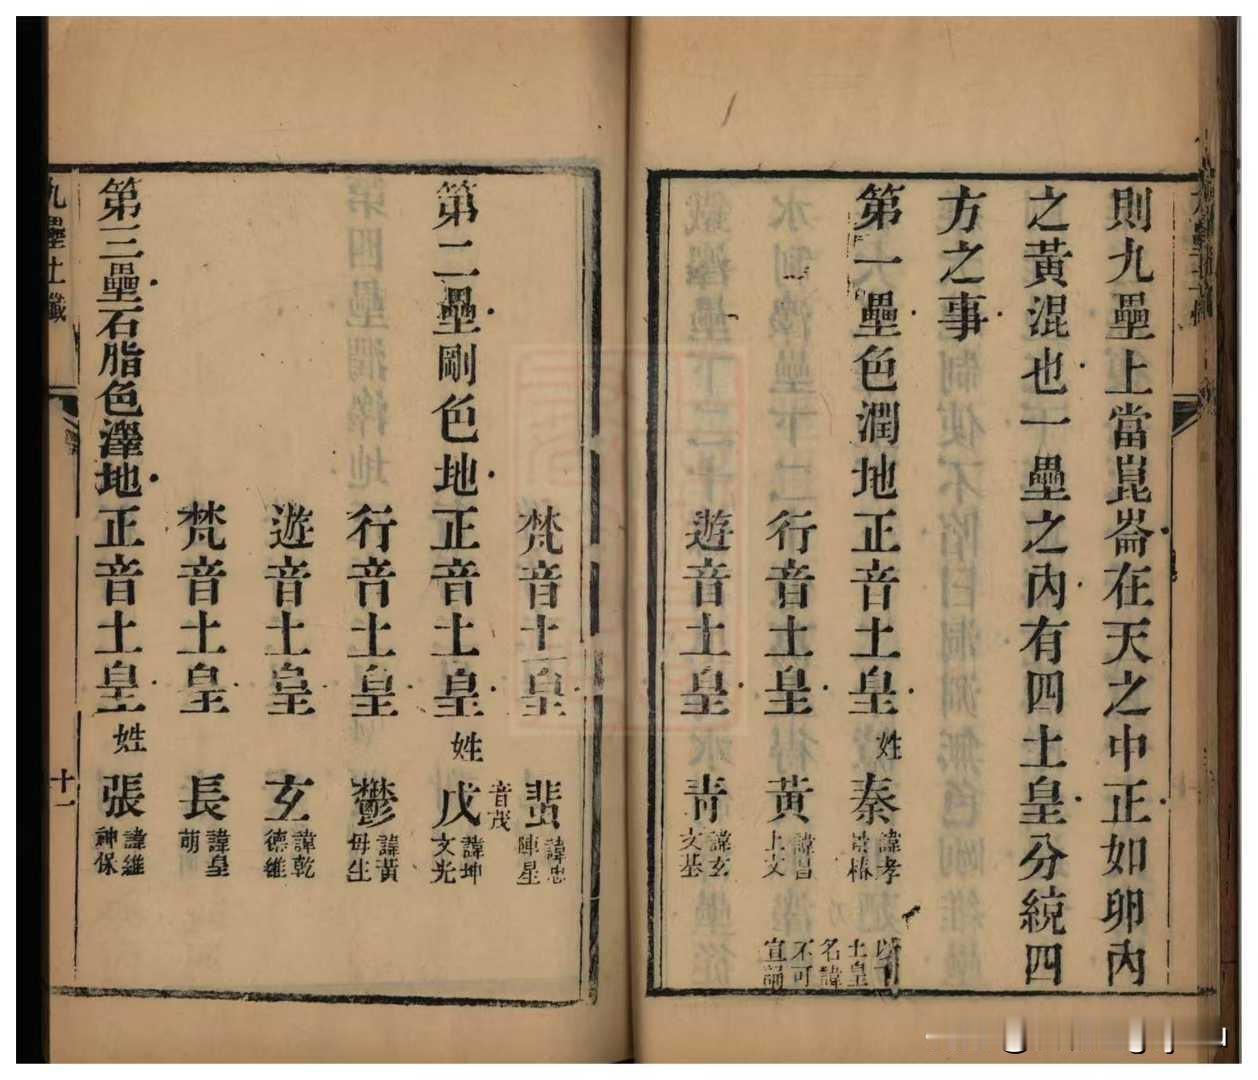 則九壘上當崑崙在天之中正如卵內
之黃混也一壘之內有四土皇分統四
方之事
第一壘色潤地正音土皇姓秦諱孝景椿
以下土皇名諱不可宣誦
行音土皇黃諱昌上文
遊音土皇青諱玄文基
梵音土皇蜚諱忠陣星
第二壘剛色地正音土皇姓戊音茂諱坤文光
行音土皇鬱諱黃母生
遊音土皇玄諱乾德維
梵音土皇長諱皇萌
第三壘石脂色澤地正音土皇姓張諱維神保
九壘土讖
十一